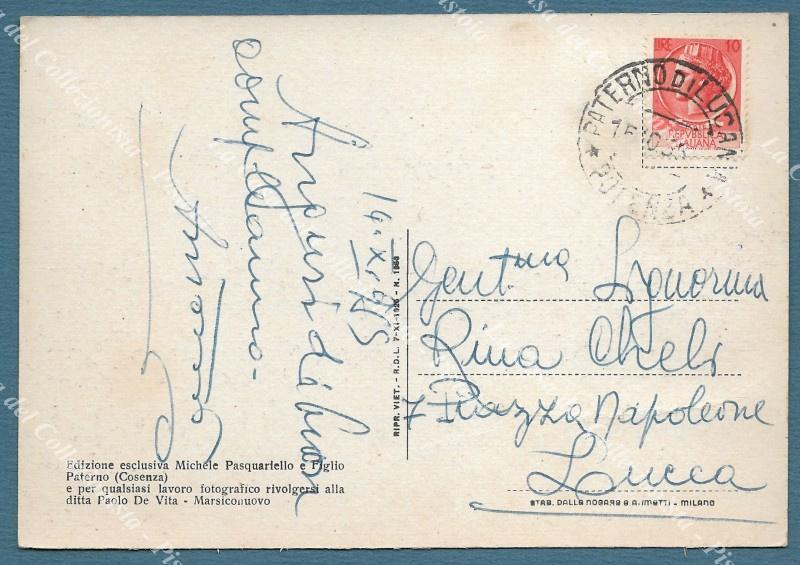 LIRE 10
REPVBBLICA
ITALIANA
PATERNO DI LUCANIA
* POTENZA *
Auguri di buon
compleanno.
Gent.ma Signorina
Rina Cheli
7 Piazza Napoleone
Lucca
RIPR. VIET. - R.D.L. 7-XI-1925 - N. 1950
Edizione esclusiva Michele Pasquariello e Figlio
Paterno (Cosenza)
e per qualsiasi lavoro fotografico rivolgersi alla
ditta Paolo De Vita - Marsiconuovo
STAB. DALLE NOGARE & A. IMETTI - MILANO